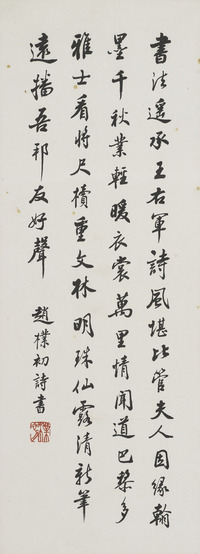 書法遥承王右軍詩風堪比管夫人因緣翰
墨千秋業輕暖衣裳萬里情聞道巴黎多
雅士看將尺牘重文林明珠仙露清新筆
遠播吾邦友好聲
趙樸初詩書